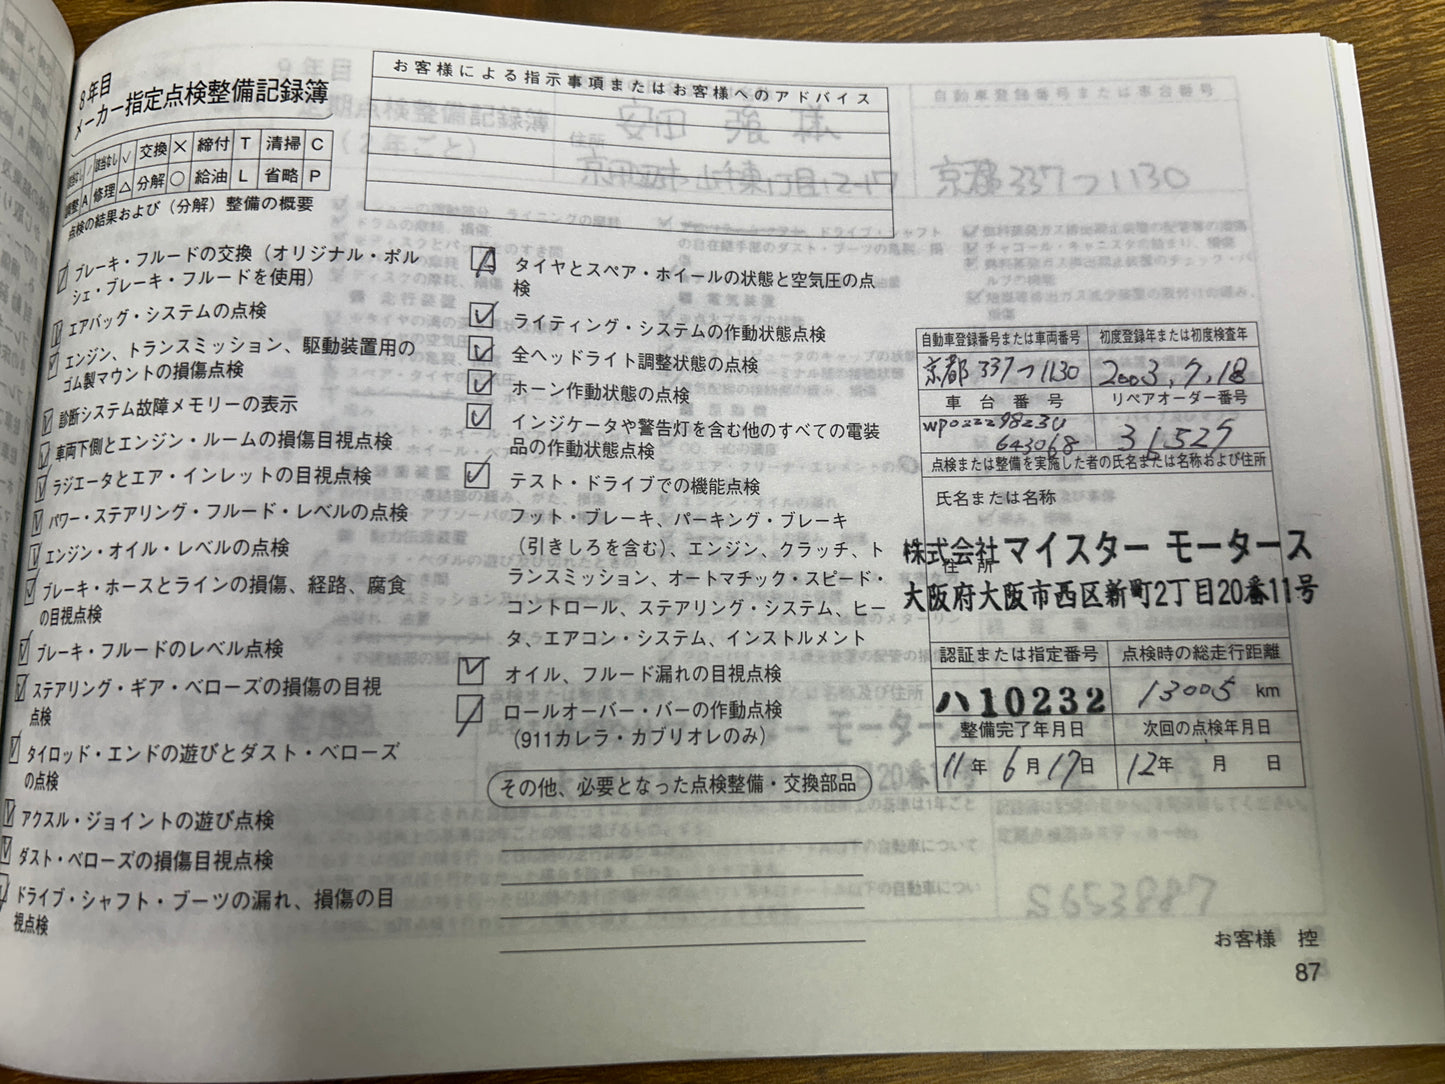 8年目
メーカー指定点検整備記録簿
該当なし ✓ 交換 × 締付 T 清掃 C
調整 A 修理 △ 分解 ○ 給油 L 省略 P
点検の結果および（分解）整備の概要
ブレーキ・フルードの交換（オリジナル・ポル
シェ・ブレーキ・フルードを使用）
エアバッグ・システムの点検
エンジン、トランスミッション、駆動装置用の
ゴム製マウントの損傷点検
診断システム故障メモリーの表示
車両下側とエンジン・ルームの損傷目視点検
ラジエータとエア・インレットの目視点検
パワー・ステアリング・フルード・レベルの点検
エンジン・オイル・レベルの点検
ブレーキ・ホースとラインの損傷、経路、腐食
の目視点検
ブレーキ・フルードのレベル点検
ステアリング・ギア・ベローズの損傷の目視
点検
タイロッド・エンドの遊びとダスト・ベローズ
の点検
アクスル・ジョイントの遊び点検
ダスト・ベローズの損傷目視点検
ドライブ・シャフト・ブーツの漏れ、損傷の目
視点検
お客様による指示事項またはお客様へのアドバイス
タイヤとスペア・ホイールの状態と空気圧の点
検
ライティング・システムの作動状態点検
全ヘッドライト調整状態の点検
ホーン作動状態の点検
インジケータや警告灯を含む他のすべての電装
品の作動状態点検
テスト・ドライブでの機能点検
フット・ブレーキ、パーキング・ブレーキ
（引きしろを含む）、エンジン、クラッチ、ト
ランスミッション、オートマチック・スピード・
コントロール、ステアリング・システム、ヒー
タ、エアコン・システム、インストルメント
オイル、フルード漏れの目視点検
ロールオーバー・バーの作動点検
（911カレラ・カブリオレのみ）
その他、必要となった点検整備・交換部品
自動車登録番号または車両番号 初度登録年または初度検査年
京都 337 つ 1130 2003, 7, 18
車台番号 リペアオーダー番号
WP0ZZZ98Z3U
643068 31,529
点検または整備を実施した者の氏名または名称および住所
氏名または名称
株式会社 マイスター モータース
住所
大阪府大阪市西区新町2丁目20番11号
認証または指定番号 点検時の総走行距離
ハ10232 13005 km
整備完了年月日 次回の点検年月日
11年 6月 17日 12年 月 日
お客様 控
87